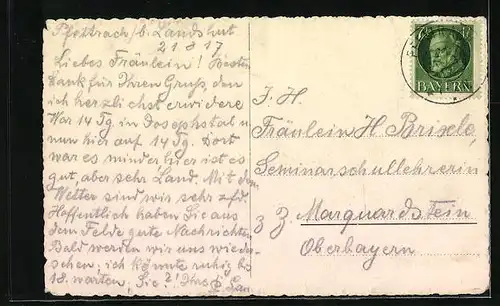 Pfettrach/b. Landshut
21 8 17
Liebes Fräulein! Besten
Dank für Ihren Gruß, den
ich herzlichst erwidere
War 14 Tg in Josephstal u
nun hier auf 14 Tg. Dort
war es minder hier ist es
gut, aber sehr Land. Mit dem
Wetter sind wir sehr zfd.
Hoffentlich haben Sie aus
dem Felde gute Nachrichten
Bald werden wir uns wieder
sehen; ich könnte ruhig bis
18. warten, Sie ?! Ihre
BAYERN
I. H.
Fräulein H
Seminarschullehrerin
z Z. Marquardstein
Oberbayern